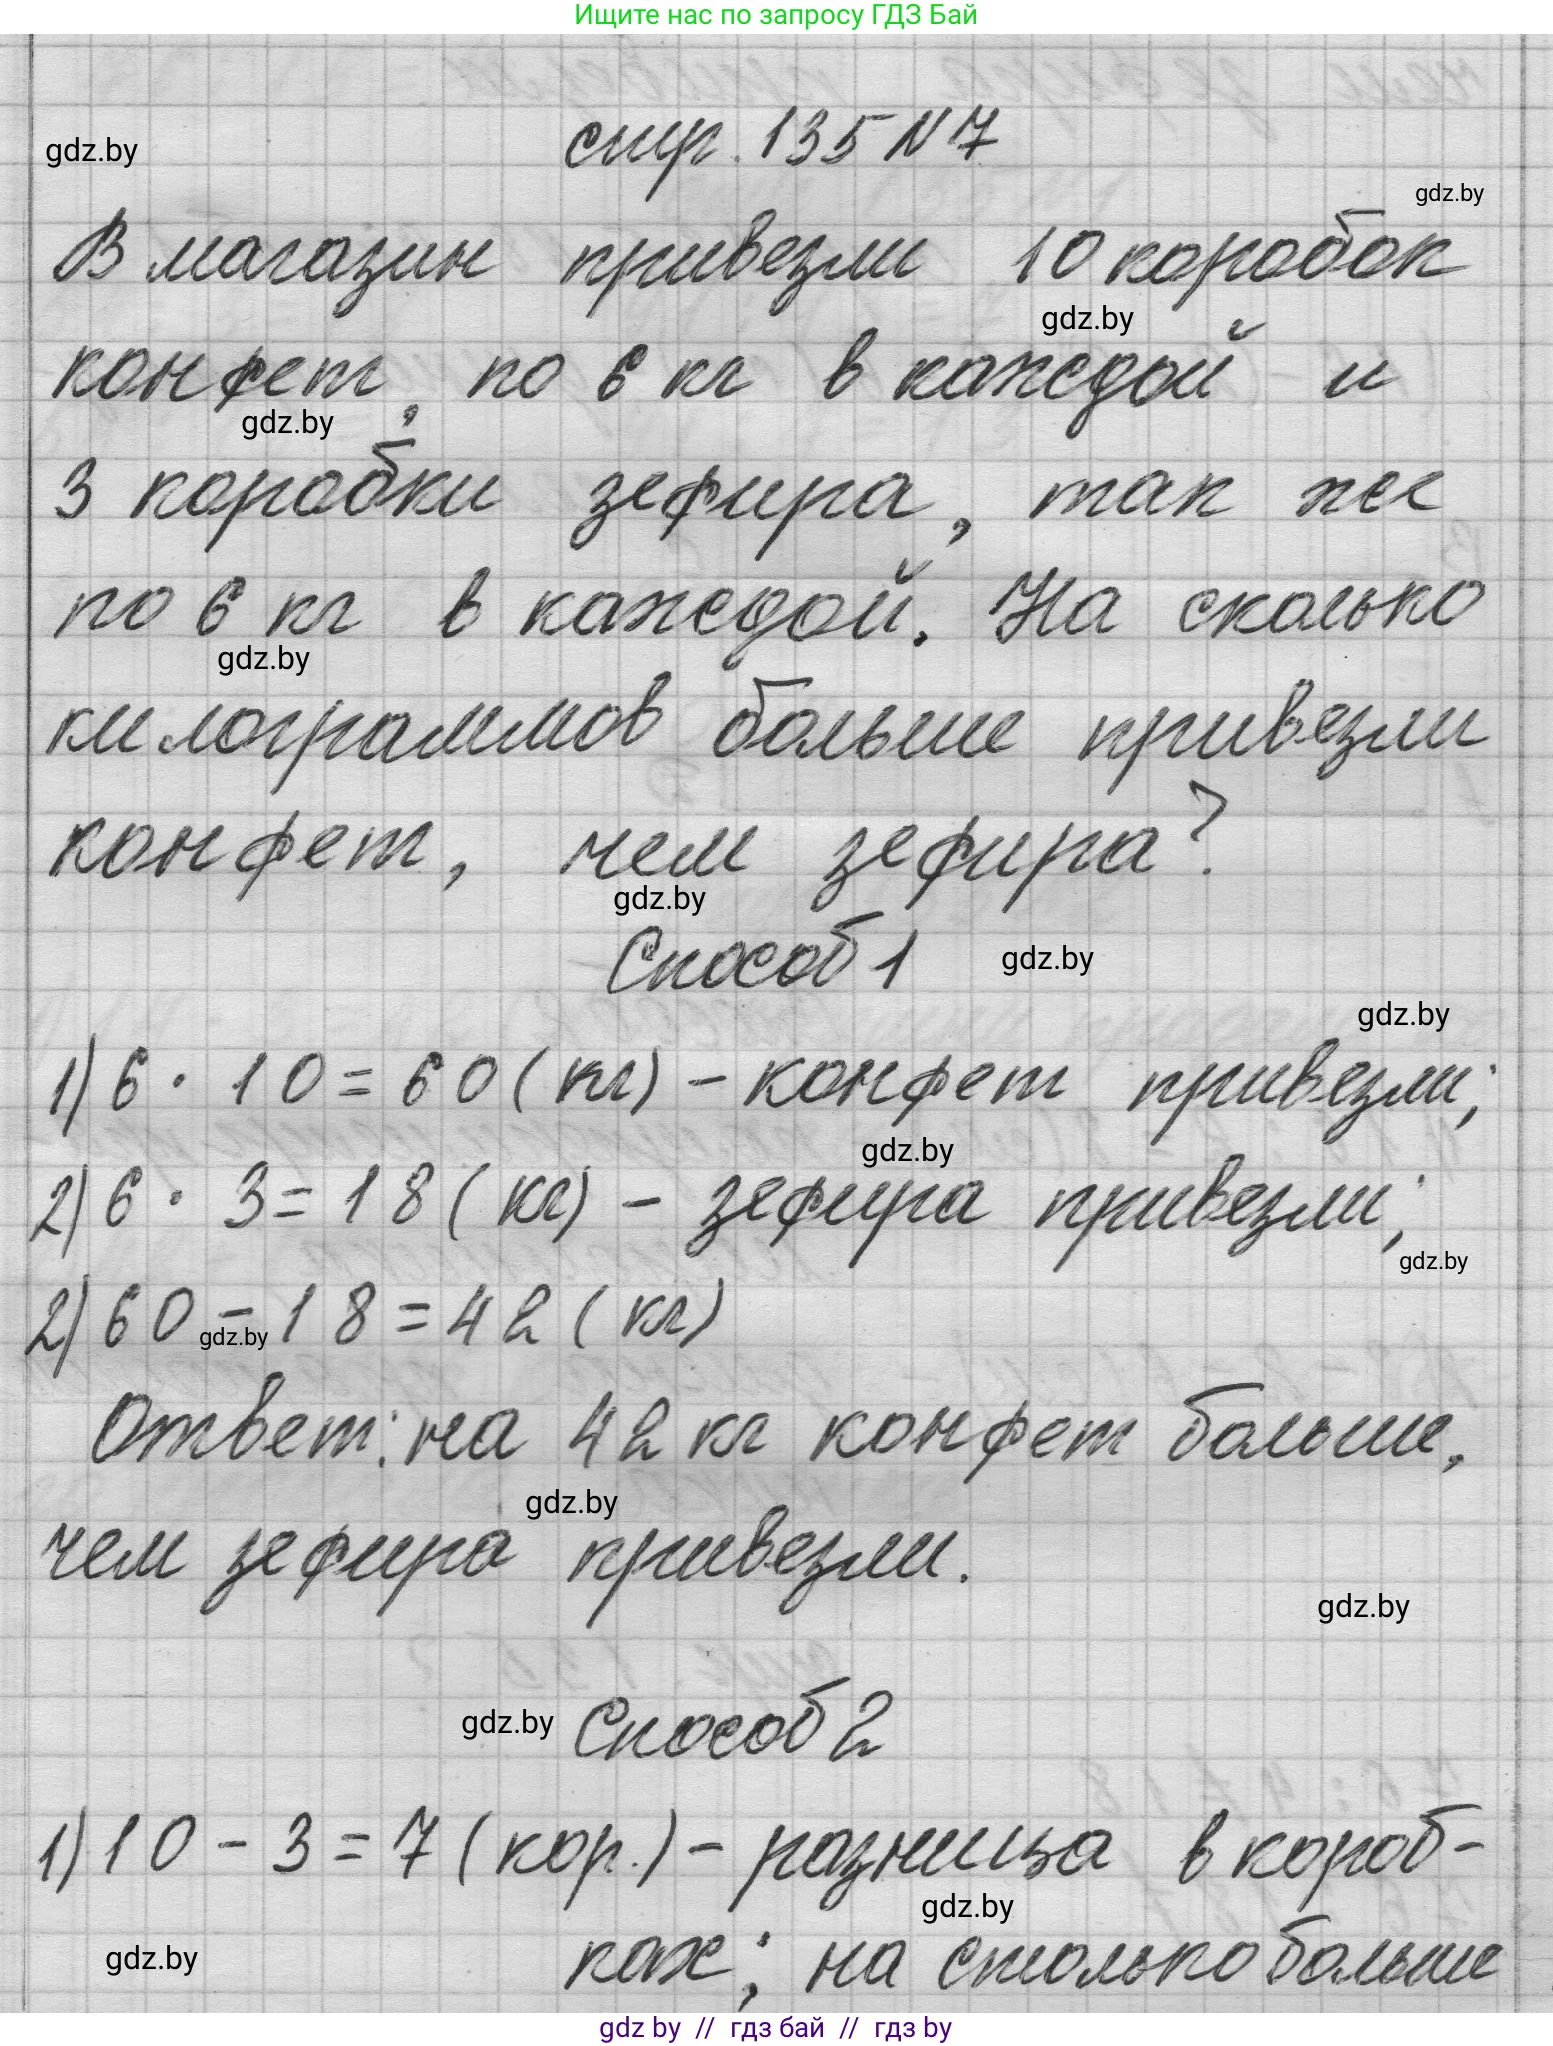 Ищите нас по запросу ГДЗ Бай
стр. 135 N 7
gdz.by
gdz.by
В магазин привезли 10 коробок
gdz.by
конфет, по 6 кг в каждой и
gdz.by
3 коробки зефира, так же
по 6 кг в каждой. На сколько
gdz.by
килограммов больше привезли
конфет, чем зефира?
gdz.by
Способ 1
gdz.by
gdz.by
1) 6 · 10 = 60 (кг) - конфет привезли;
gdz.by
2) 6 · 3 = 18 (кг) - зефира привезли;
gdz.by
2) 60 - 18 = 42 (кг)
gdz.by
Ответ: на 42 кг конфет больше,
gdz.by
чем зефира привезли.
gdz.by
gdz.by
Способ 2
1) 10 - 3 = 7 (кор.) - разница в короб-
gdz.by
ках; на столько больше
gdz.by
gdz by // гдз бай // гдз by